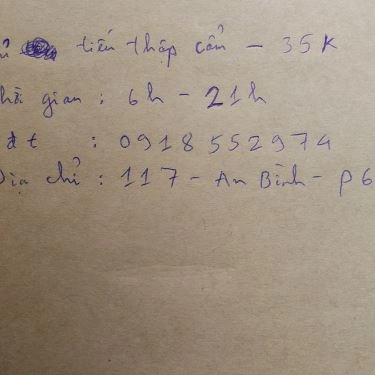 tiếu thập cẩm - 35K
gian : 6h - 21h
đt : 0918552974
Địa chỉ : 117 - An Bình - P6